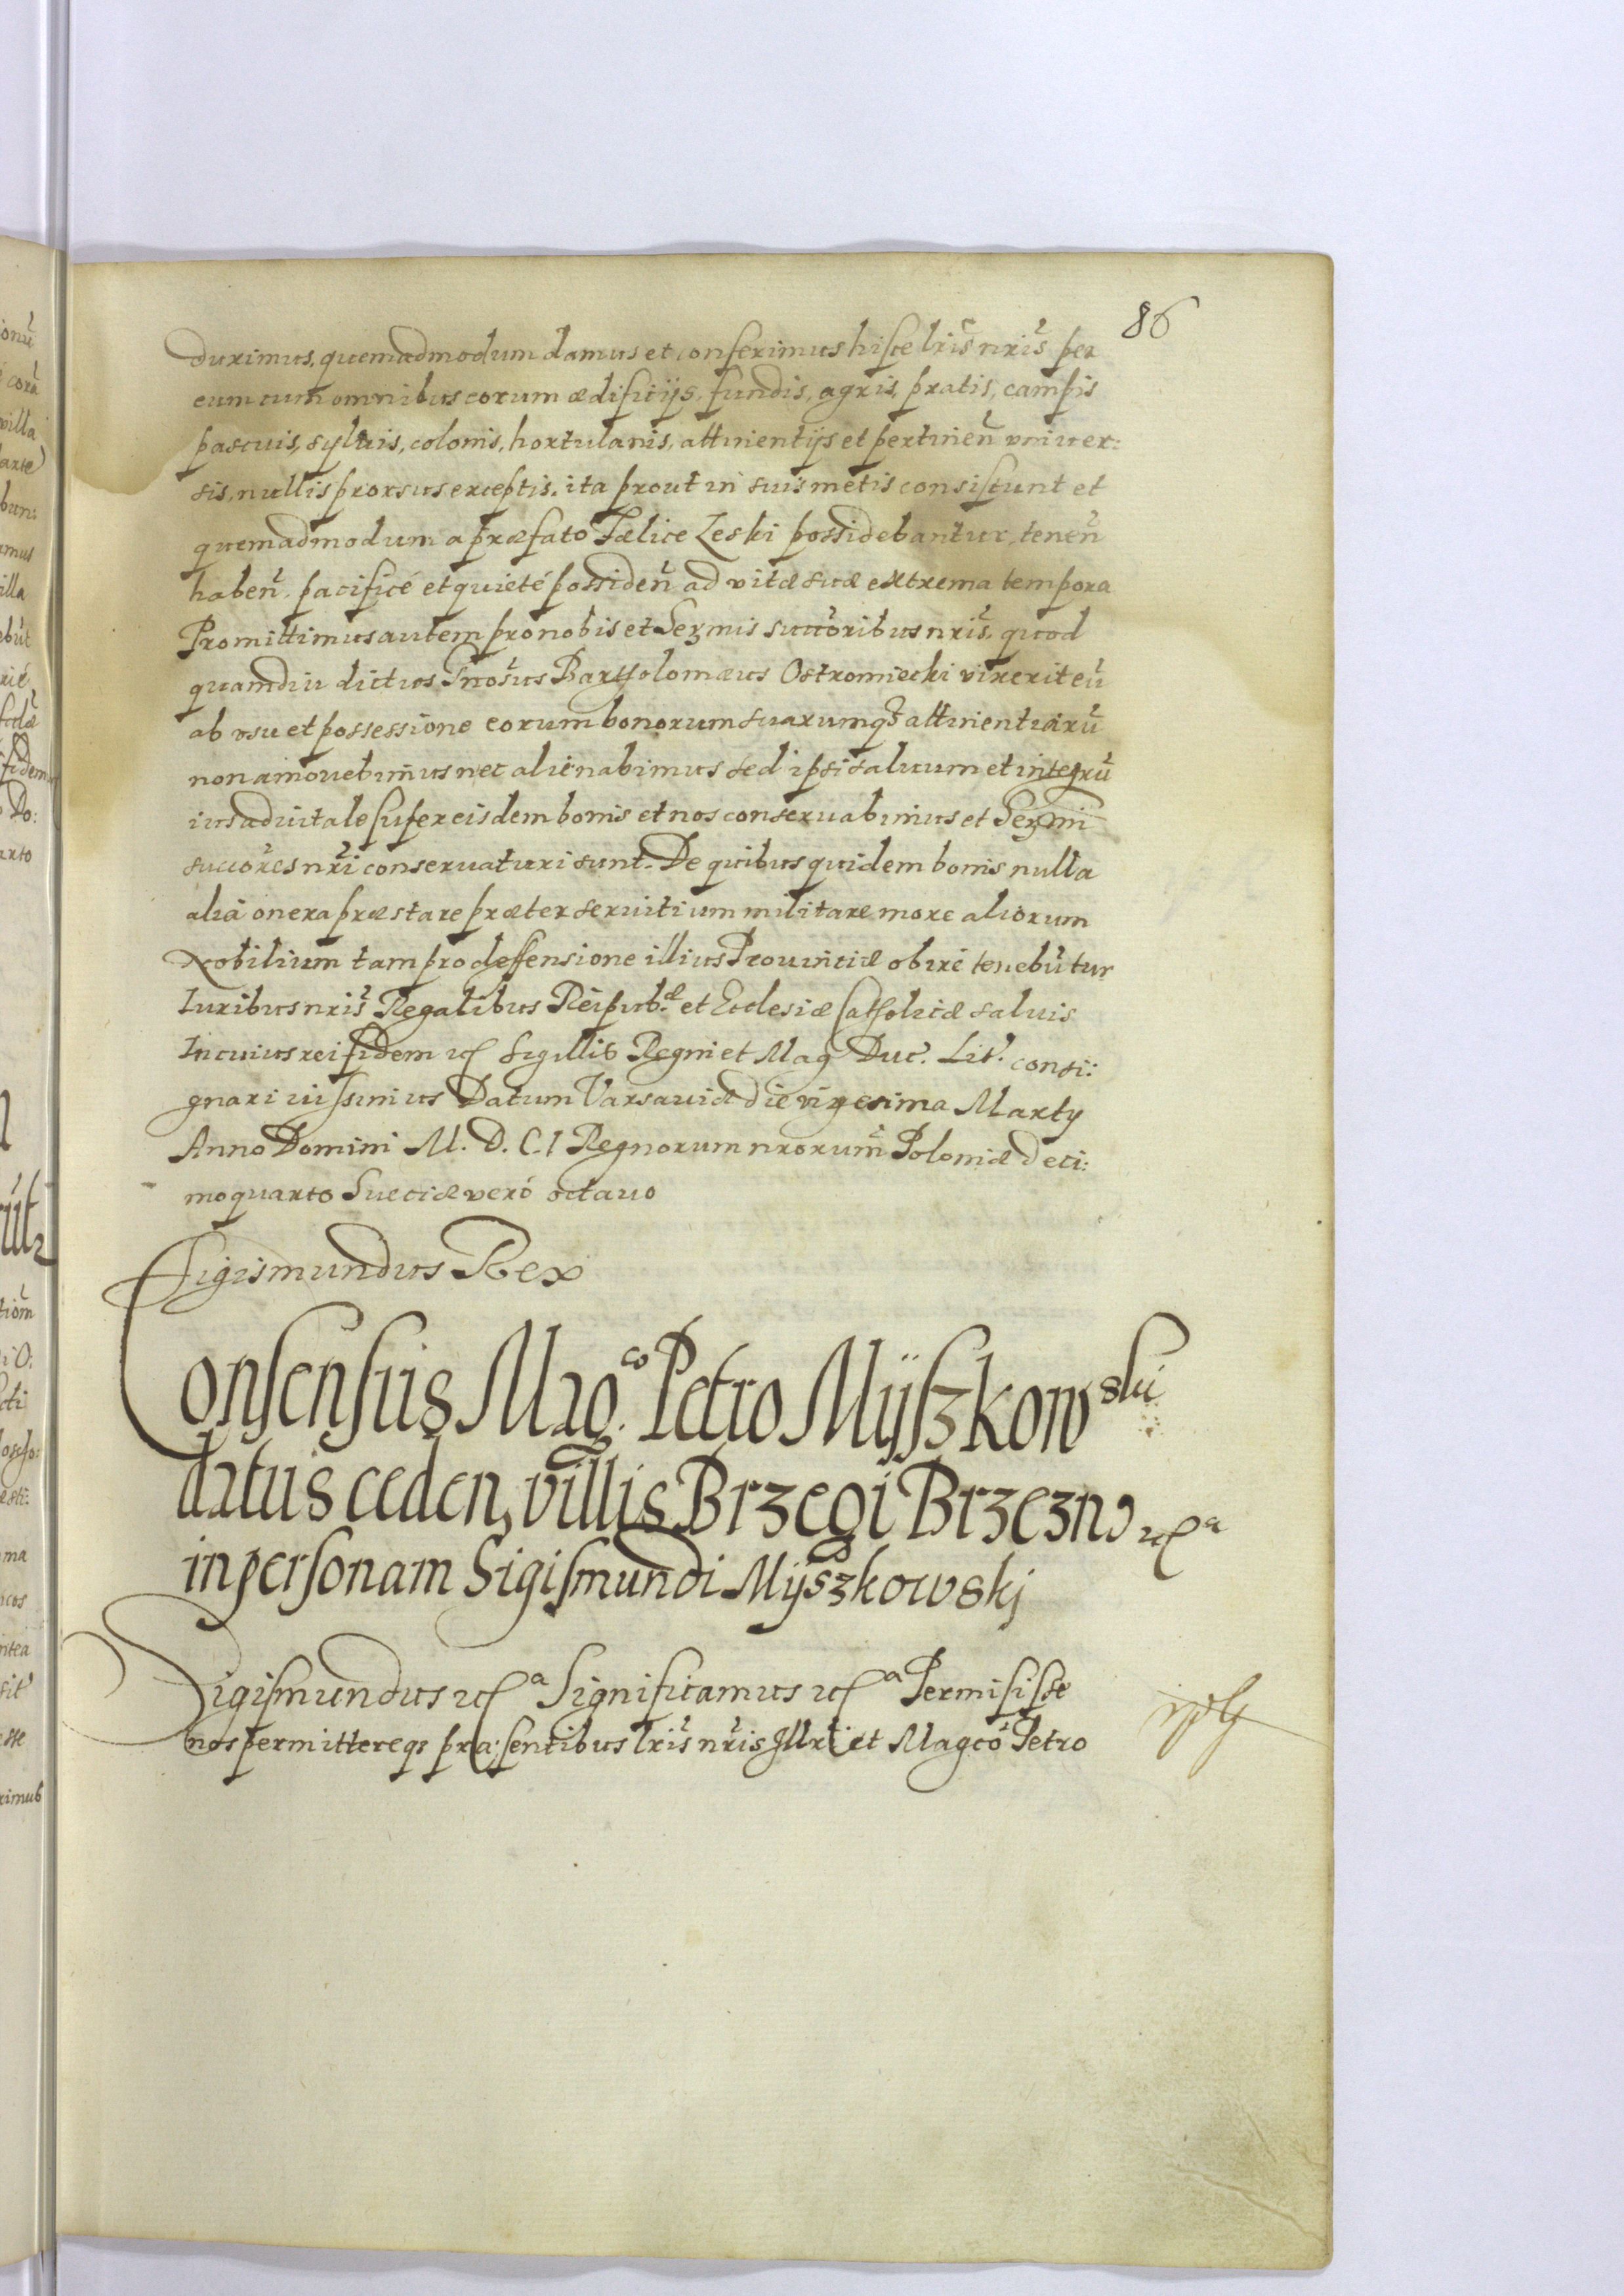 86
duximus, quemadmodum damus et conferimus hisce lris̃ nris̃ per
eum cum omnibus eorum ædificijs, fundis, agris, pratis, campis
pascuis, syluis, colonis, hortulanis, attinentijs et pertineñ vniuer:
sis, nullis prorsus exceptis. ita prout in suis metis consistunt et
quemadmodum a præfato Fælice Leski possidebantur, teneñ
habeñ. pacificé et quieté possideñ ad vitæ suæ extrema tempora
Promittimus autem pro nobis et Sermis succoribus nris̃, quod
quamdiu dictus Gnosus Bartholomæus Ostromiecki vixerit eũ
ab vsu et possessione eorum bonorum suarumq₃ attinentiarũ
non amouebimus nec alienabimus sed ipsi saluum et integrũ
ius aduitale super eisdem bonis et nos conseruabimus et Sermi
succores nri conseruaturi sunt. De quibus quidem bonis nulla
alia onera præstare præter seruitium militare more aliorum
Nobilium tam pro deffensione illius Prouinciæ obire tenebũtur
Iuribus nris̃ Regalibus Reipub.æ et Ecclesiæ Catholicæ saluis
In cuius rei fidem etc Sigillis Regni et Mag Duc. Lit. consi:
gnari iussimus Datum Varsauiæ die vigesima Martÿ
Anno Domini M. D. C. I Regnorum nrorum̃ Poloniæ deci:
moquarto Sueciæ veró octauo
Sigismundus Rex
Consensus Mag.co Petro Mÿszkowski
datus ceden, villis Brzegi Brzezno etc.a
in personam Sigismundi Mÿszkowskj
Sigismundus etc.a Significamus etc.a Permisisse
nos permittereq₃ præ:sentibus lris̃ nris̃ Illri et Magco Petro